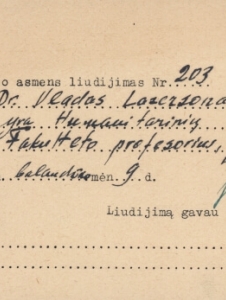 o asmens liudijimas Nr. 203
Dr. Vladas Lazersonas
yra Humanitarinių
Fakulteto profesorius,
balandžio mėn. 9 d.
Liudijimą gavau